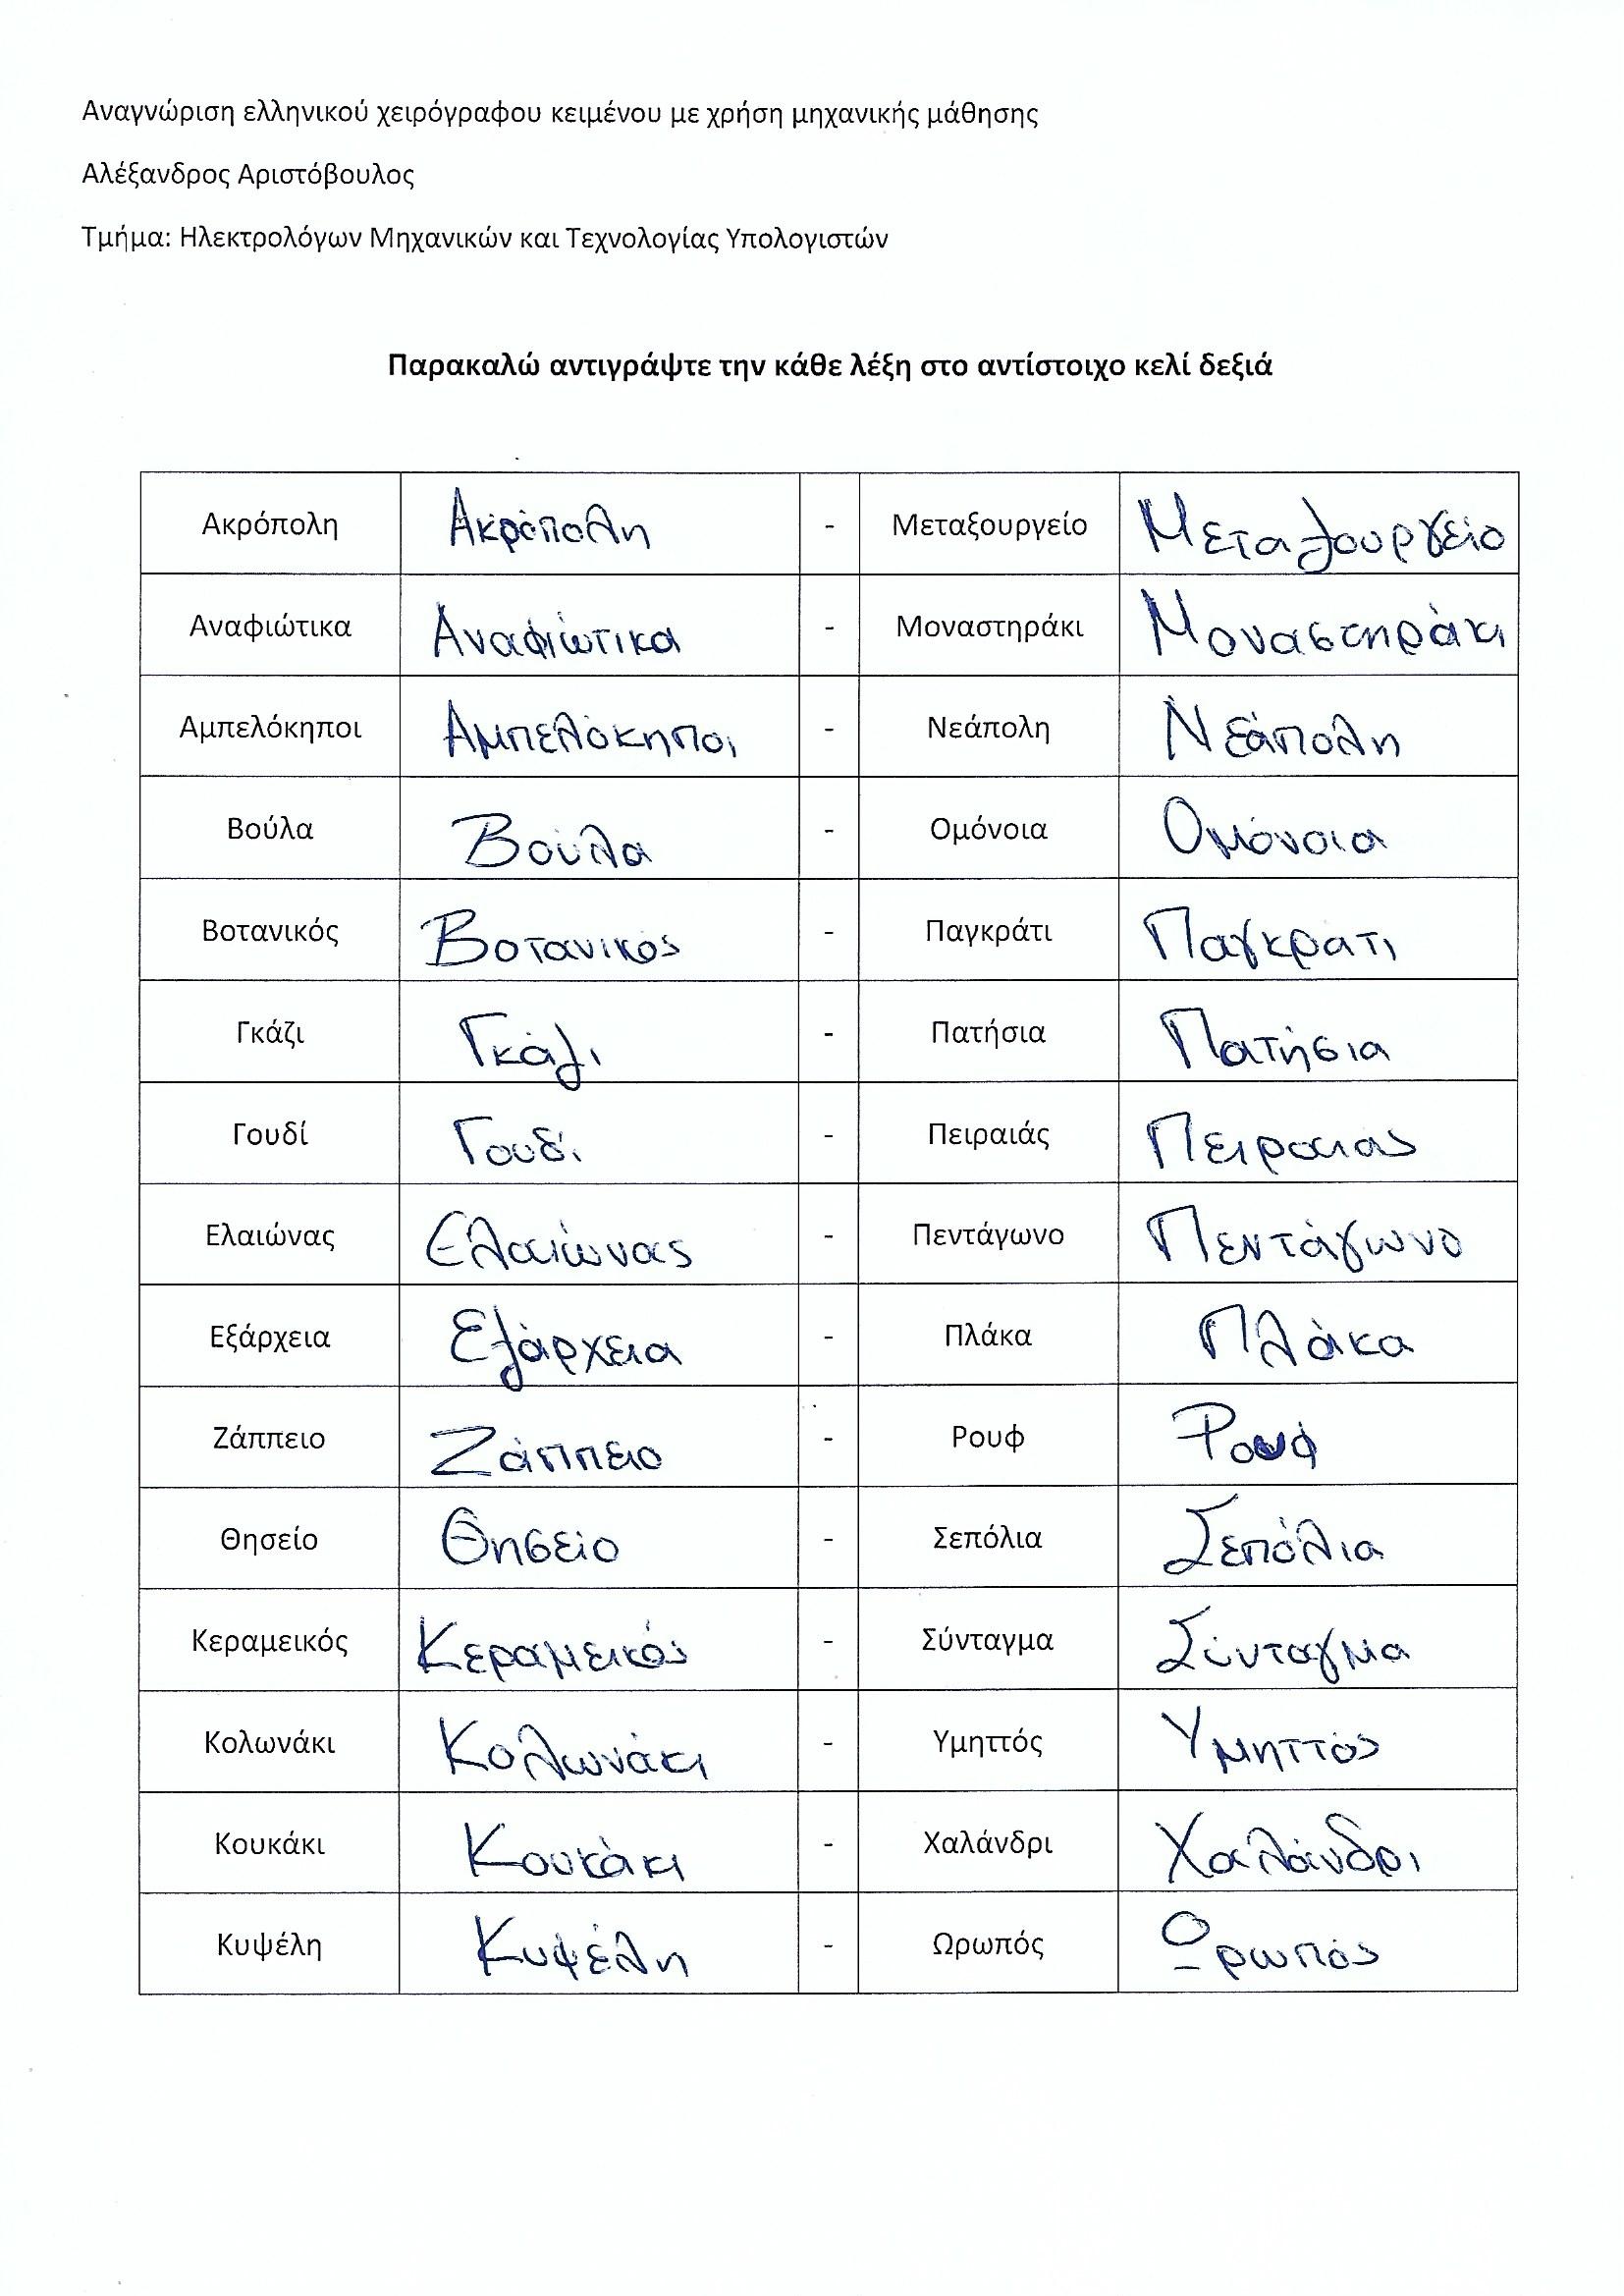 Αναγνώριση ελληνικού χειρόγραφου κειμένου με χρήση μηχανικής μάθησης
Αλέξανδρος Αριστόβουλος
Τμήμα: Ηλεκτρολόγων Μηχανικών και Τεχνολογίας Υπολογιστών
Παρακαλώ αντιγράψτε την κάθε λέξη στο αντίστοιχο κελί δεξιά
Ακρόπολη Ακρόπολη - Μεταξουργείο Μεταξουργείο
Αναφιώτικα Αναφιώτικα - Μοναστηράκι Μοναστηράκι
Αμπελόκηποι Αμπελόκηποι - Νεάπολη Νεάπολη
Βούλα Βούλα - Ομόνοια Ομόνοια
Βοτανικός Βοτανικός - Παγκράτι Παγκράτι
Γκάζι Γκάζι - Πατήσια Πατήσια
Γουδί Γουδί - Πειραιάς Πειραιας
Ελαιώνας Ελαιώνας - Πεντάγωνο Πεντάγωνο
Εξάρχεια Εξάρχεια - Πλάκα Πλάκα
Ζάππειο Ζάππειο - Ρουφ Ρουφ
Θησείο Θησείο - Σεπόλια Σεπόλια
Κεραμεικός Κεραμεικός - Σύνταγμα Σύνταγμα
Κολωνάκι Κολωνάκι - Υμηττός Υμηττός
Κουκάκι Κουκάκι - Χαλάνδρι Χαλάνδρι
Κυψέλη Κυψέλη - Ωρωπός Ωρωπός